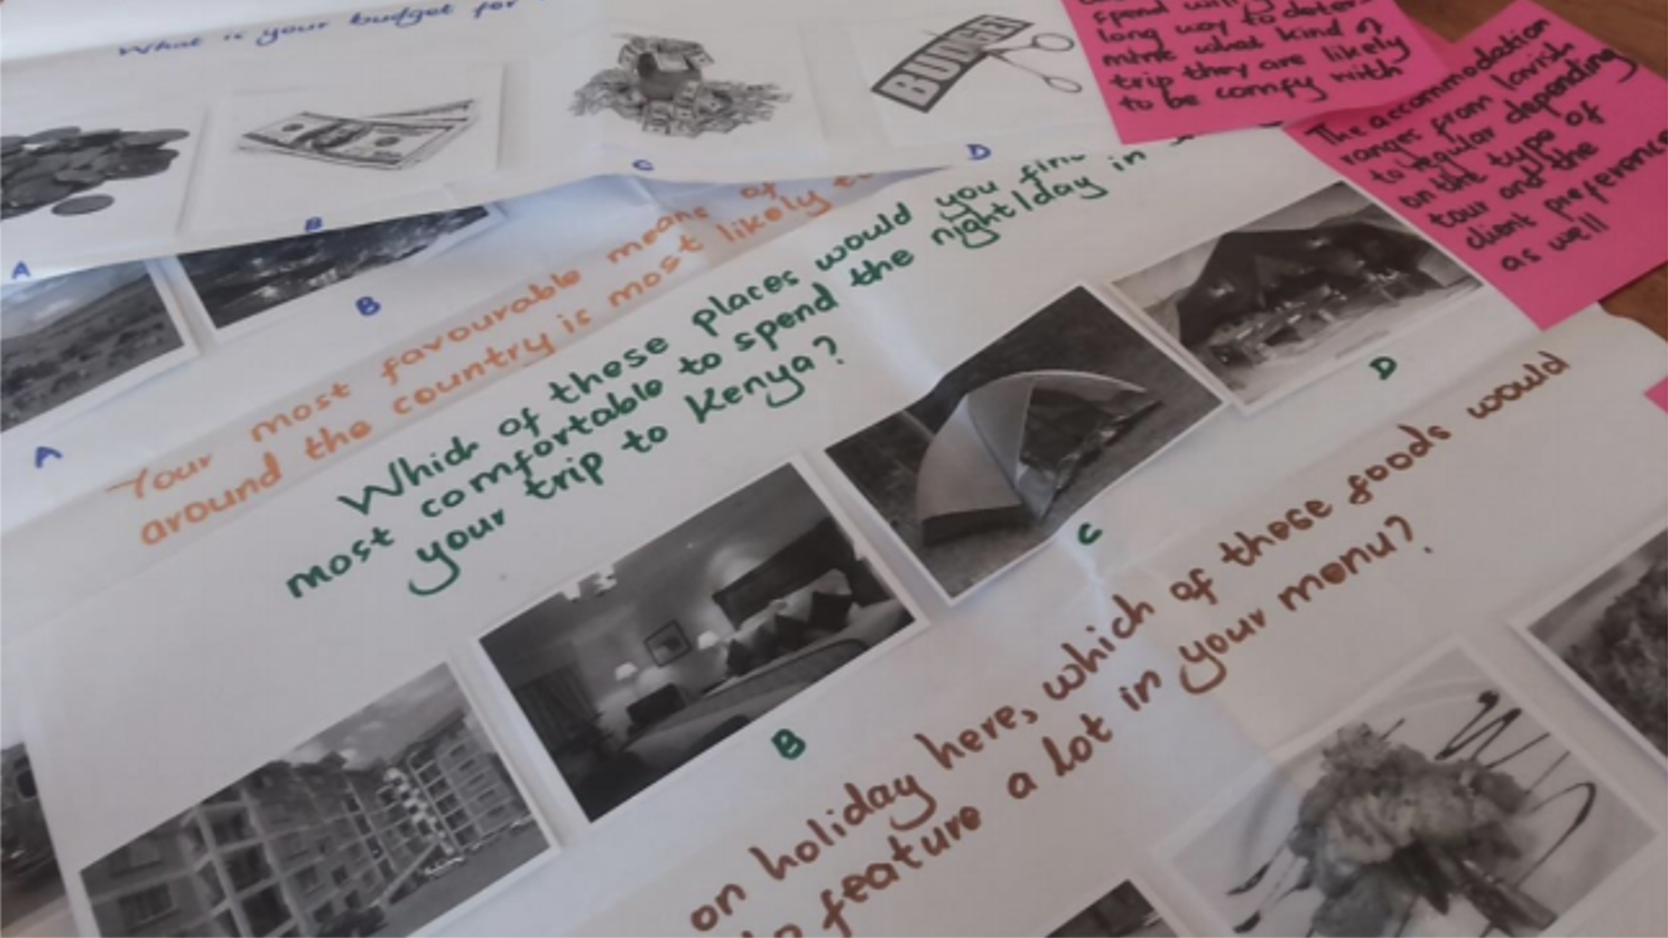 What is your budget for
BUDGET
A
B
C
D
spend
long way to deter-
mine what kind of
trip they are likely
to be comfy with
The accommodation
ranges from lavish
to regular depending
on the type of
tour and the
client preference
as well
A
B
Your most favourable means of
around the country is most likely
Which of these places would you
most comfortable to spend the night/day in
your trip to Kenya?
B
C
D
on holiday here, which of these foods would
feature a lot in your menu?